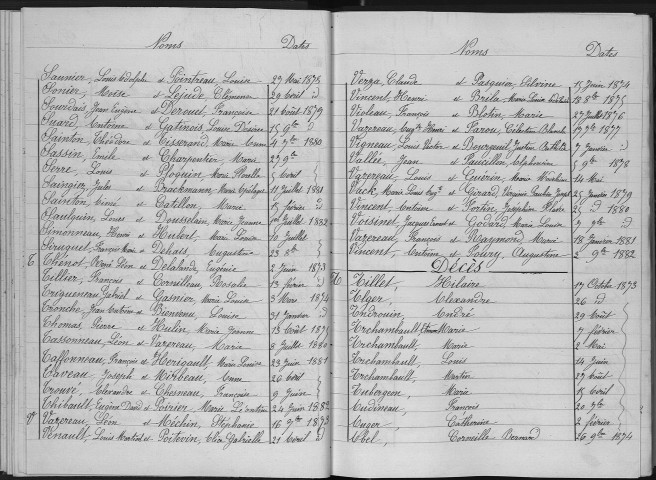 Noms Dates
Saunier, Louis Adolphe et Pointreau Louise 27 Mai 1878
Sonier, et Lejude Clémence 29 Avril d
Sourdais, Jean Eugène et Derouet, Françoise 21 Août 1879
Suard, Antoine et Gatinois Louise Désirée 15 9bre d
Sainton, Théodore et Tisserand Marie 4 7bre 1880
Sassin, Emile et Charpentier Marie 27 9bre
Serre, Louis et Ploquin, Marie Avril
Saingier, Jules et Brackmann, Marie 11 Juillet 1881
Sainton, Aimé et Catillon, Marie 15 février d
Saulquin, Louis et Dousselain, Marie Jeanne Juillet 1882
Simonneau, Henri et Hubert, Marie Louise 10 Juillet
Siruguet, François Marie et Dehail, Augustine 23 8bre
T Thénot, René Léon et Delalande Eugénie 2 Juin 1873
Tellier, François et Cornilleau, Rosalie 13 février d
Trigueneau Gabriel et Gasnier, Marie Louise 3 Mars 1874
Tranche, Jean Antoine et Bienvenu, Louise 31 Janvier d
Thomas, Pierre et Hulin, Marie Jeanne 13 Août 1875
Tassonneau, Léon et Vazereau, Marie 8 Juillet 1880
Taffonneau, François et Hérigault, Marie Louise 23 Juin 1881
Taveau, Joseph et Mirbeau, Anne 26 Avril
Trouvé, Alexandre et Chesneau, Françoise 9 Juin
Thibault, Eugène David et Poirier Marie Léontine 24 Juin 1882
V Vazereau, Léon et Méchin, Stéphanie 16 9bre 1873
Venault, Louis Martial et Poitevin, Clara Gabrielle 21 Avril d
Noms Dates
Verza, Claude et Pasquier, Silvine 15 Juin 1874
Vincent, Henri et Brila, Marie Louise 18 8bre 1875
Violeau, François et Blotin, Marie 27 Juillet 1876
Vazereau, Henri et Parou, Célestine Blanche 17 7bre 1877
Vigneau, Louis Victor et Bourgeuil, Justine Bathilde 7 Janvier d
Vallée, Jean et Paucillon, 9bre 1878
Vazereau, Louis et Guérin, Marie 14 Mai
Vack, Marie Louis et Girard, Virginie 25 Janvier 1879
Vincent, Antoine et Portier, Joséphine 25 d 1880
Voisinet, Jacques Ernest et Godard, Marie Louise 7bre d
Vazereau, François et Raymond, Marie 18 Janvier 1881
Vincent, Antoine et Poury, Augustine 2 9bre 1882
Décès
A Aillet, Hilaire 17 Octobre 1873
Alger, Alexandre 26 d
Androuin, André 29 Août
Archambault, Marie 7 février
Archambault, Marie 2 Mai
Archambault, Louis 14 Juin
Archambault, Martin 27 Août
Aubergeon, Marie 15 Avril
Audineau, François 20 7bre
Auger, Catherine 2 février
Abel, Corneille Bernard 26 9bre 1874